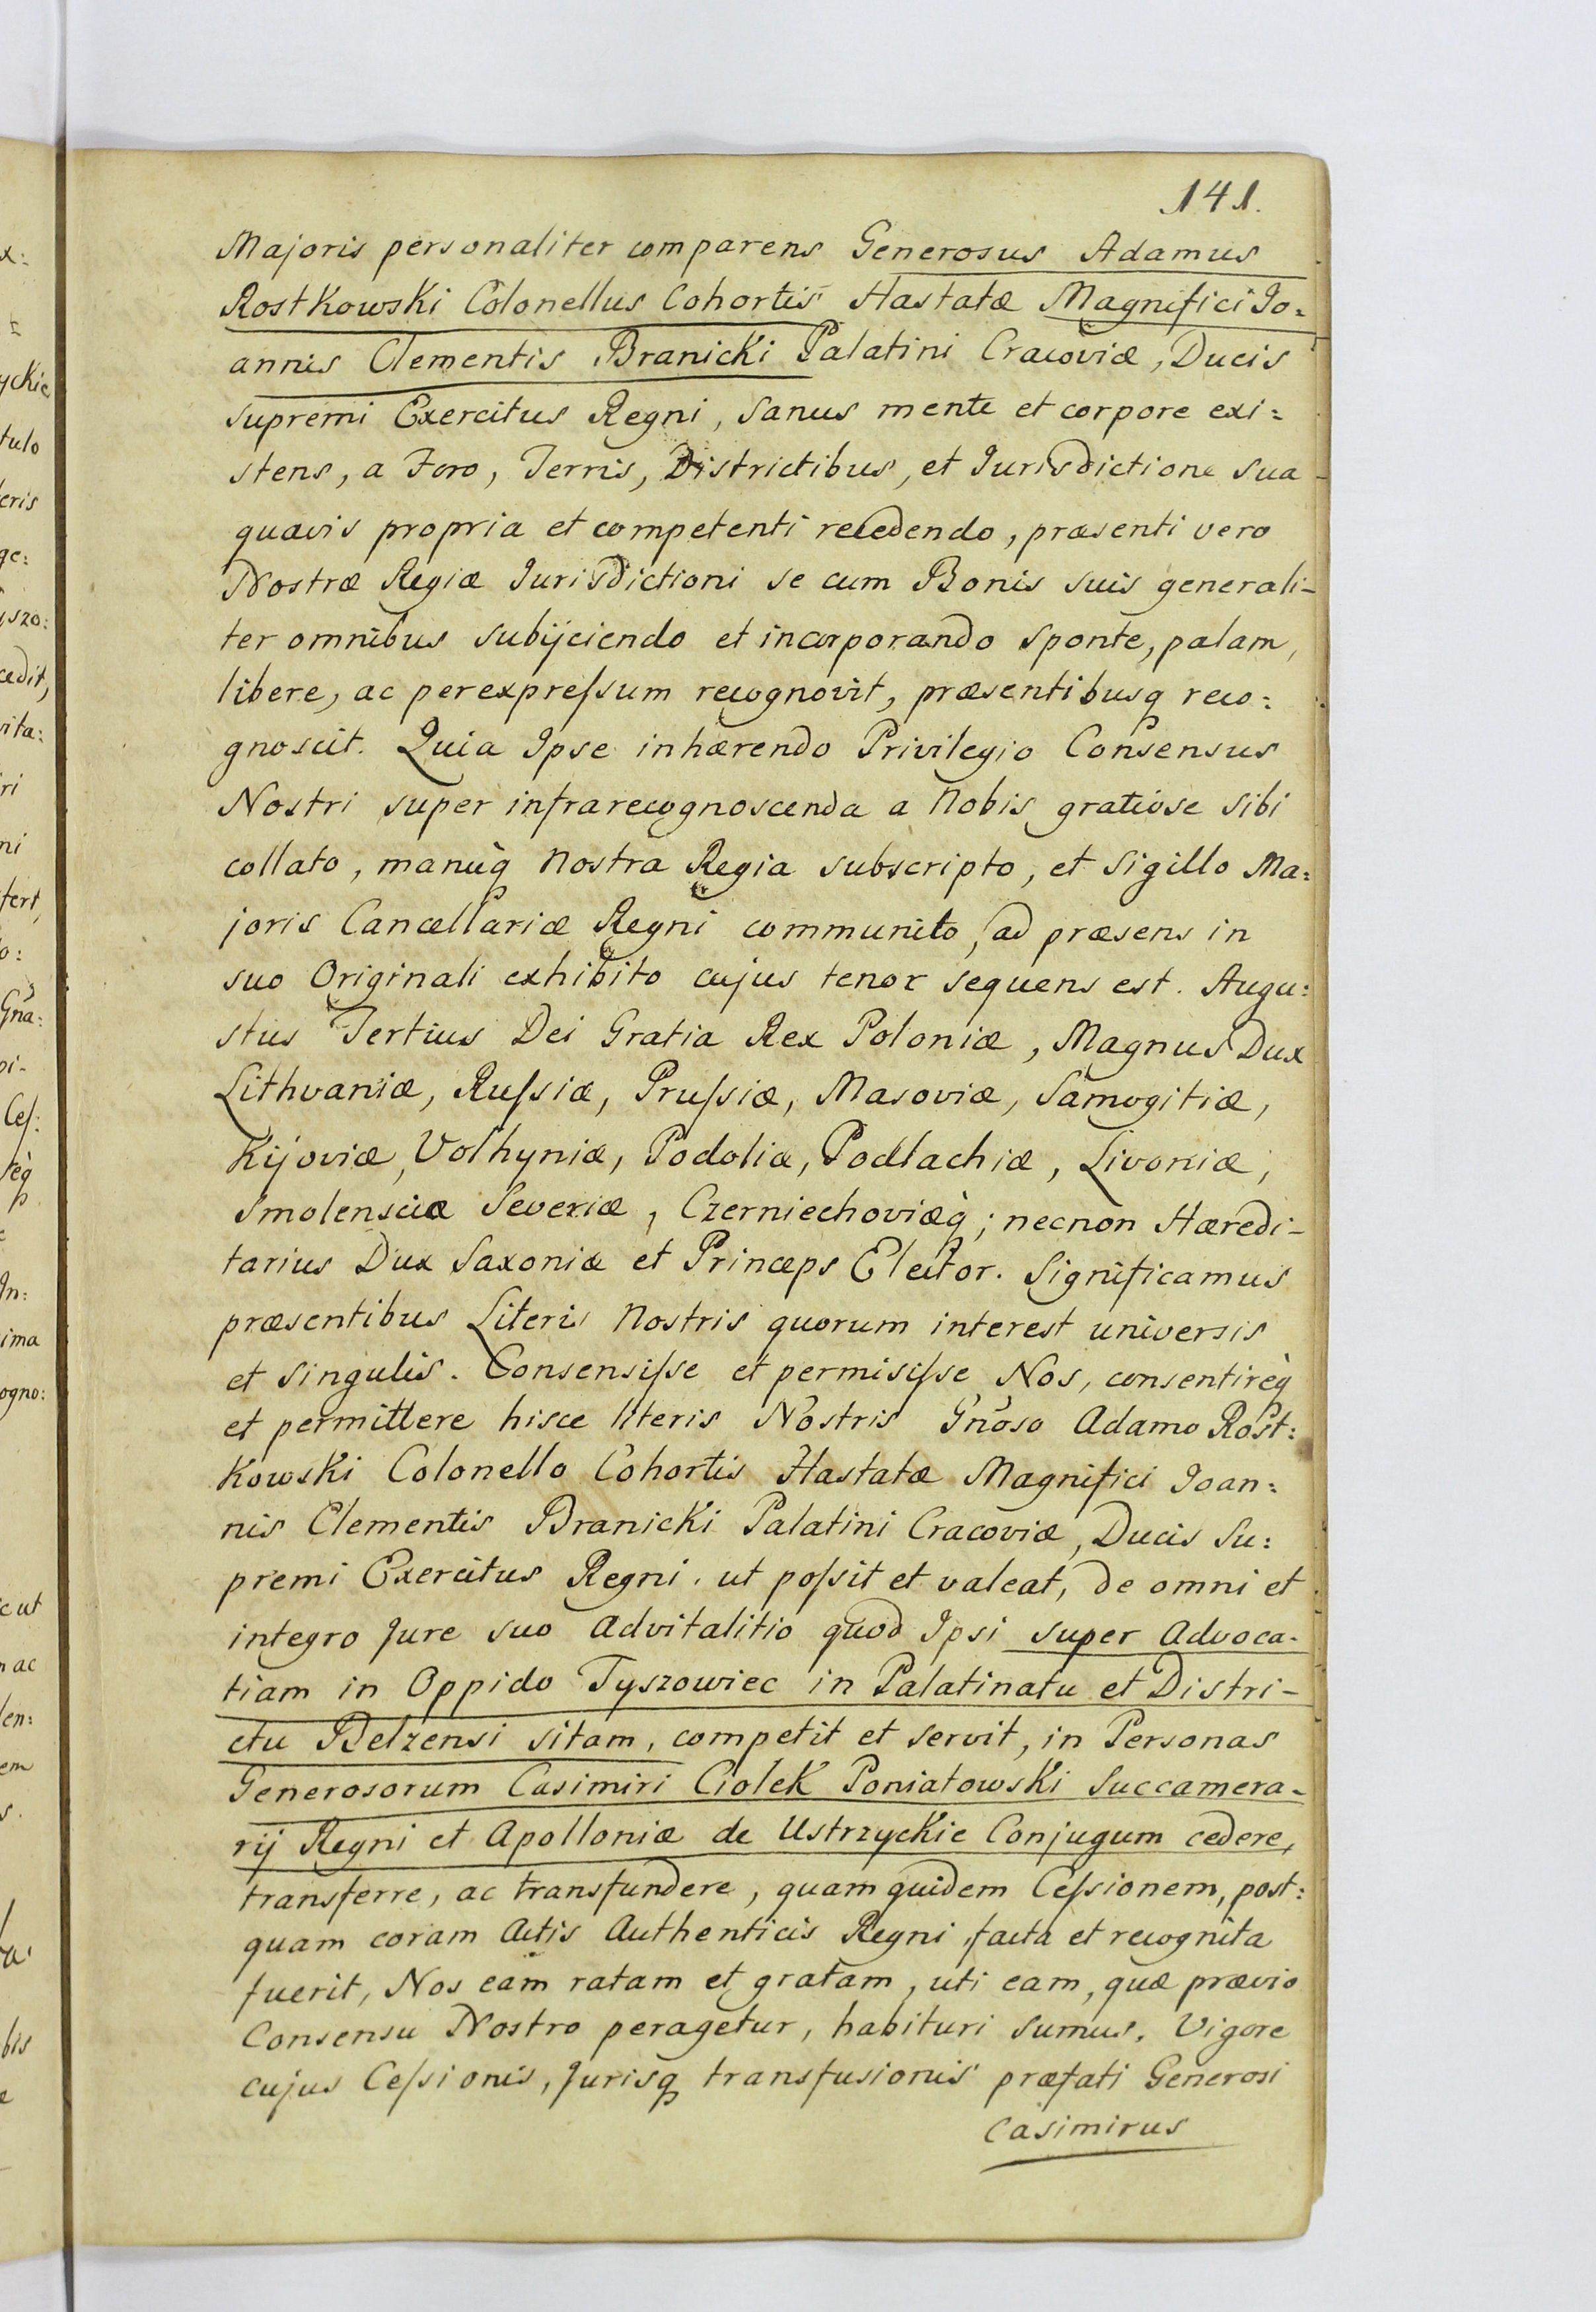 141.
Majoris personaliter comparens Generosus Adamus
Rostkowski Colonellus Cohortis Hastatæ Magnifici Jo=
annis Clementis Branicki Palatini Cracoviæ, Ducis
supremi Exercitus Regni, sanus mente et corpore exi=
stens, a Foro, Terris, Districtibus, et Jurisdictione sua
quavis propria et competenti recedendo, præsenti vero
Nostræ Regiæ Jurisdictioni se cum Bonis suis generali-
ter omnibus subijciendo et incorporando sponte, palam,
libere, ac perexpreſsum recognovit, præsentibusq reco=
gnoscit. Quia Ipse inhærendo Privilegio Consensus
Nostri super infrarecognoscenda a Nobis gratiose sibi
collato, manùq Nostra Regia subscripto, et Sigillo Ma=
joris Cancellariæ Regni communito, ad præsens in
suo Originali exhibito cujus tenor sequens est. Augu=
stus Tertius Dei Gratia Rex Poloniæ, Magnus Dux
Lithvaniæ, Ruſsiæ, Pruſsiæ, Masoviæ, Samogitiæ,
Kijoviæ, Volhyniæ, Podoliæ, Podlachiæ, Livoniæ,
Smolensciæ Severiæ, Czerniechoviæq̀; necnon Hæredi-
tarius Dux Saxoniæ et Princeps Elector. Significamus
præsentibus Literis Nostris quorum interest universis
et singulis. Consensiſse et permisiſse Nos, consentirèq
et permittere hisce literis Nostris Gnoso Adamo Rost=
kowski Colonello Cohortis Hastatæ Magnifici Joan=
nis Clementis Branicki Palatini Cracoviæ, Ducis Su=
premi Exercitus Regni, ut poſsit et valeat, de omni et
integro Jure suo Advitalitio quod Ipsi super Advoca-
tiam in Oppido Tyszowiec in Palatinatu et Distri-
ctu Belzensi sitam, competit et servit, in Personas
Generosorum Casimiri Ciolek Poniatowski Succamera-
rij Regni et Apolloniæ de Ustrzyckie Conjugum cedere,
transferre, ac transfundere, quam quidem Ceſsionem, post=
quam coram Actis Authenticis Regni facta et recognita
fuerit, Nos eam ratam et gratam, uti eam, quæ prævio
Consensu Nostro peragetur, habituri sumus. Vigore
cujus Ceſsionis, Jurisq transfusionis præfati Generosi
Casimirus